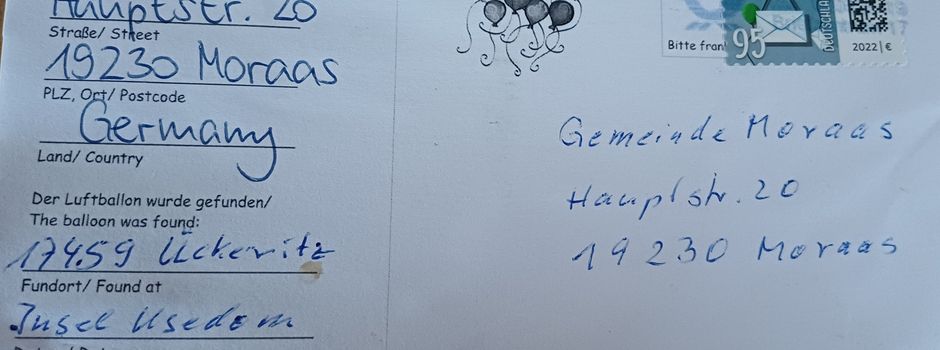 Hauptstr. 20
Straße/ Street
19230 Moraas
PLZ, Ort/ Postcode
Germany
Land/ Country
Der Luftballon wurde gefunden/
The balloon was found:
17459 Ückeritz
Fundort/ Found at
Insel Usedom
Bitte fran
95
DEUTSCHLA
2022 | €
Gemeinde Moraas
Hauptstr. 20
19230 Moraas